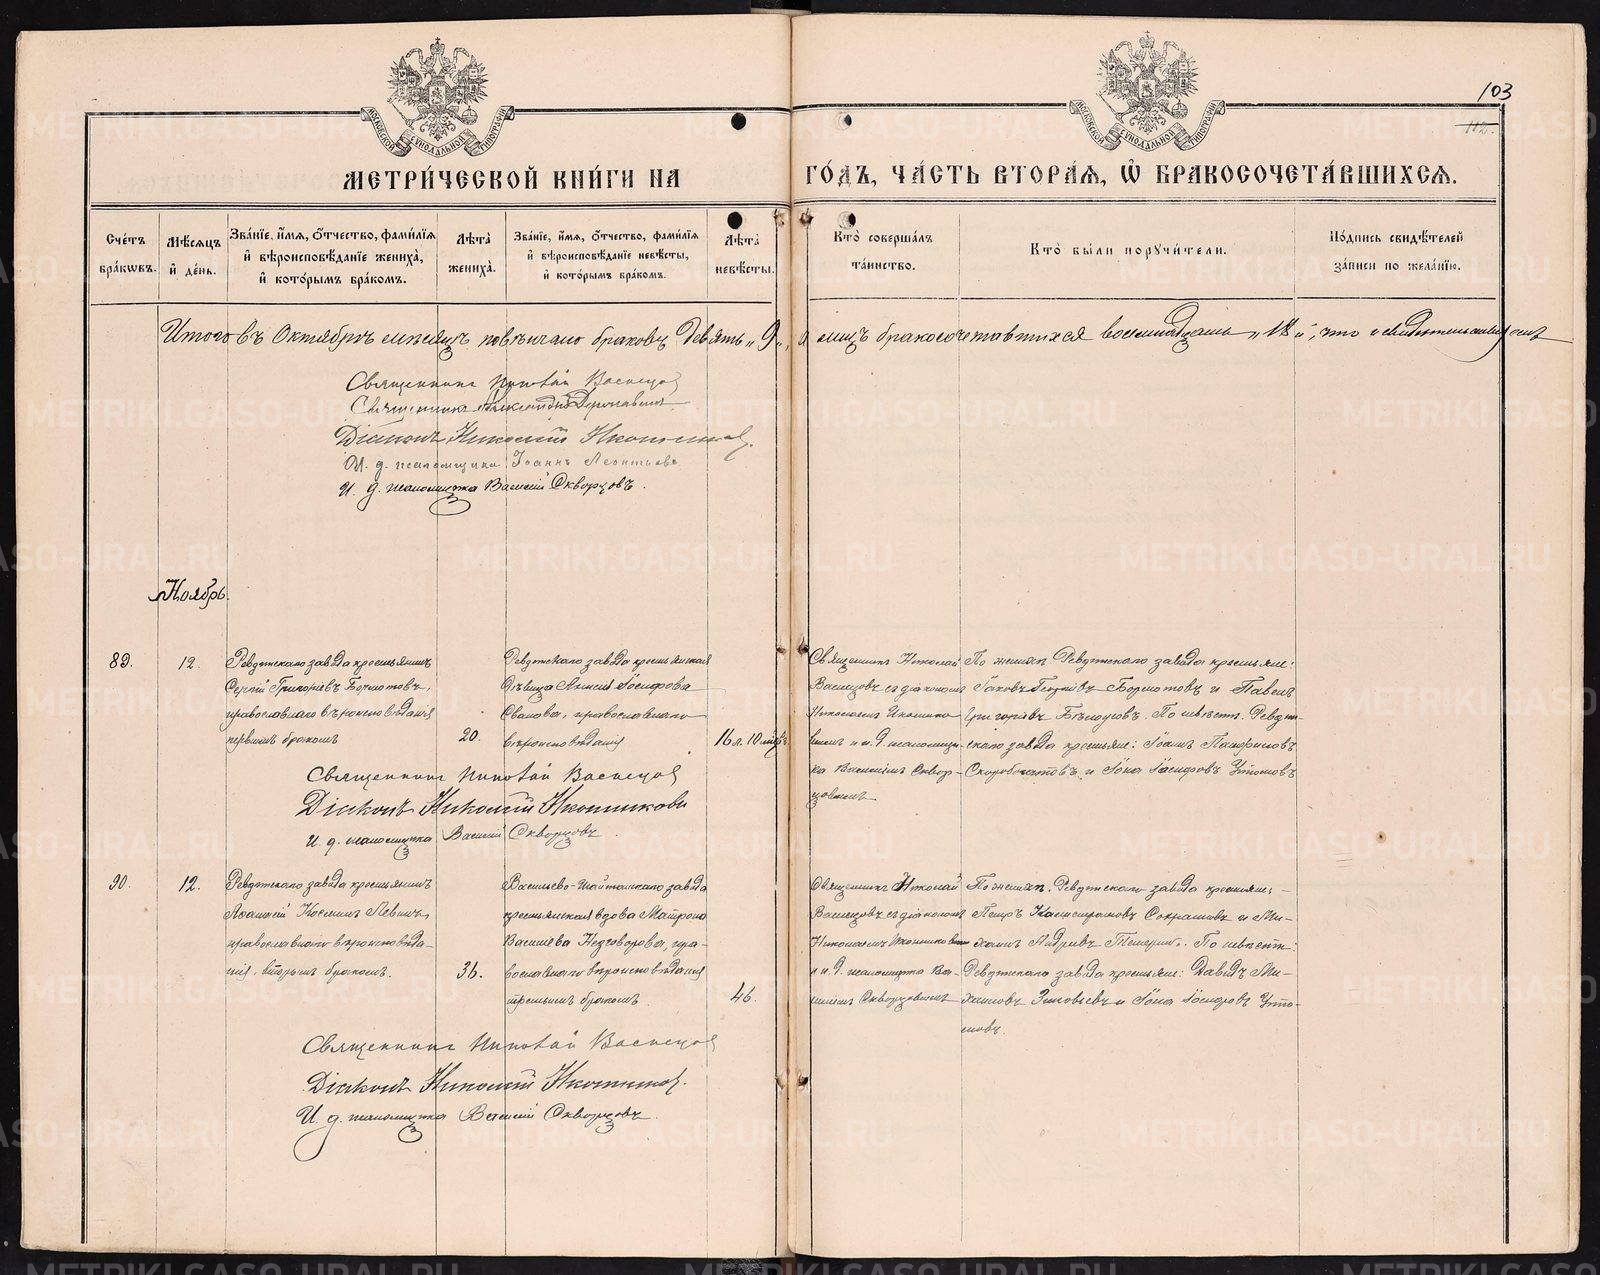 103
112.
МЕТРИ́ЧЕСКОЙ КНИ́ГИ НА ГО́ДЪ, ЧА́СТЬ ВТОРА́Я, Ѡ БРАКОСОЧЕТА́ВШИХСЯ.
Сче́тъ бра́ковъ.
Мѣ́сяцъ и҆ де́нь.
Зва́нїе, и҆́мя, ѻ҆́тчество, фами́лїя и҆ вѣроисповѣ́данїе жениха̀, и҆ кото́рымъ бра́комъ.
Лѣ́та жениха̀.
Зва́нїе, и҆́мя, ѻ҆́тчество, фами́лїя и҆ вѣроисповѣ́данїе невѣ́сты, и҆ кото́рымъ бра́комъ.
Лѣ́та невѣ́сты.
Кто̀ соверша́лъ та́инство.
Кто̀ бы́ли поручи́тели.
По́дпись свидѣ́телей за́писи по жела́нїю.
Итого въ Октябрѣ мѣсяцѣ повѣнчано браковъ девять „9„, и лицъ бракосочетавшихся восемнадцать „18„, что и свидѣтельствуемъ
Священникъ Николай Васнецов
Священникъ Александръ
Діаконъ Николай Иконников.
И. д. псаломщика Іоаннъ Леонтьевъ.
И. д. псаломщика Василій Скворцовъ.
Ноябрь.
89.
12.
Ревдинскаго завода крестьянинъ
Сергій Григорьевъ Бормотовъ,
православнаго вѣроисповѣданія
первымъ бракомъ
20.
Ревдинскаго завода крестьянская
дѣвица Іосифова
православнаго
вѣроисповѣданія
16 л. 10 мѣс.
Священникъ Николай
Васнецовъ съ діакономъ
Николаемъ Иконнико-
вымъ и и. д. псаломщи-
ка Василіемъ Сквор-
цовымъ
По женихѣ Ревдинскаго завода крестьяне:
Іаковъ Бормотовъ и Павелъ
Григорьевъ Бѣлоусовъ. По невѣстѣ. Ревдин-
скаго завода крестьяне: Іоаннъ Панфиловъ
Скоробогатовъ и Іона Іосифовъ
Священникъ Николай Васнецов
Діаконъ Николай Иконниковъ
И. д. псаломщика Василій Скворцовъ.
90.
12.
Ревдинскаго завода крестьянинъ
Аѳанасій Косминъ Левинъ,
православнаго вѣроисповѣда-
нія, вторымъ бракомъ.
36.
Васильево-Шайтанскаго завода
крестьянская вдова Матрона
Васильева пра-
вославнаго вѣроисповѣданія
третьимъ бракомъ.
46.
Священникъ Николай
Васнецовъ съ діакономъ
Николаемъ Иконниковымъ
и и. д. псаломщика Ва-
силіемъ Скворцовымъ
По женихѣ. Ревдинскаго завода крестьяне:
Петръ и Ми-
хаилъ Андреевъ По невѣстѣ:
Ревдинскаго завода крестьяне: Давидъ Ми-
хаиловъ Зиновьевъ и Іона Іосифовъ
Священникъ Николай Васнецов
Діаконъ Николай Иконников.
И. д. псаломщика Василій Скворцовъ.